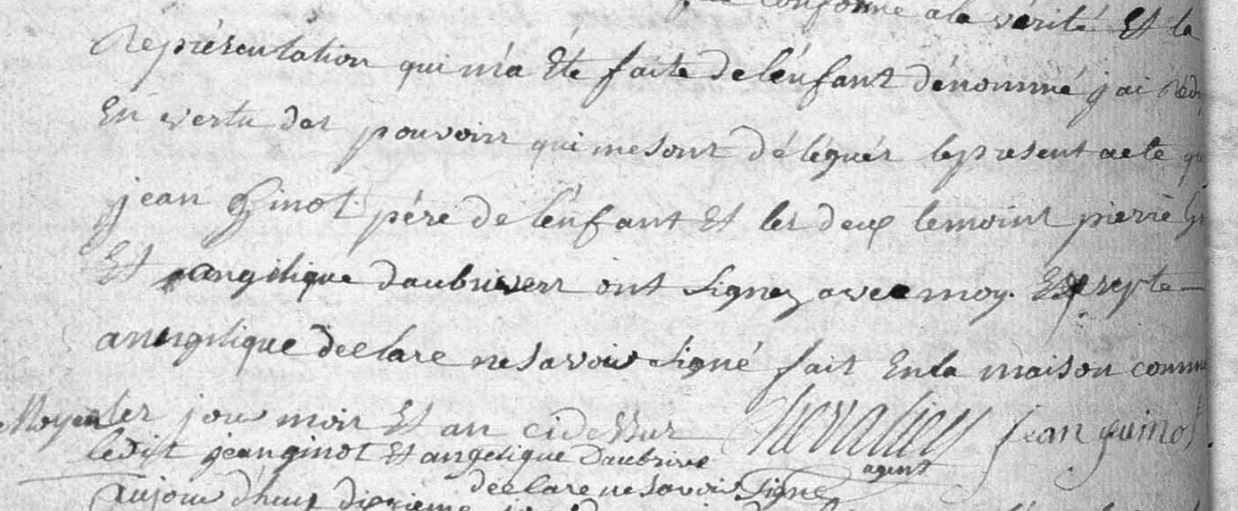 conforme a la vérité Et la
Représentation qui m'a Été faite de l'enfant dénommé j'ai
En vertu des pouvoirs qui me sont délégués le présent acte
jean Ginot père de l'enfant Et les deux temoins pierre
Et angelique daubrive ont signez avec moy Exsepte
angelique declare ne savoir signé fait En la maison commu
les jour mois Et an ci dessus Chevalier jean guinot
ledit jean ginot Et angelique Daubrive agent
declare ne savoir signe
aujourd'huy dixieme